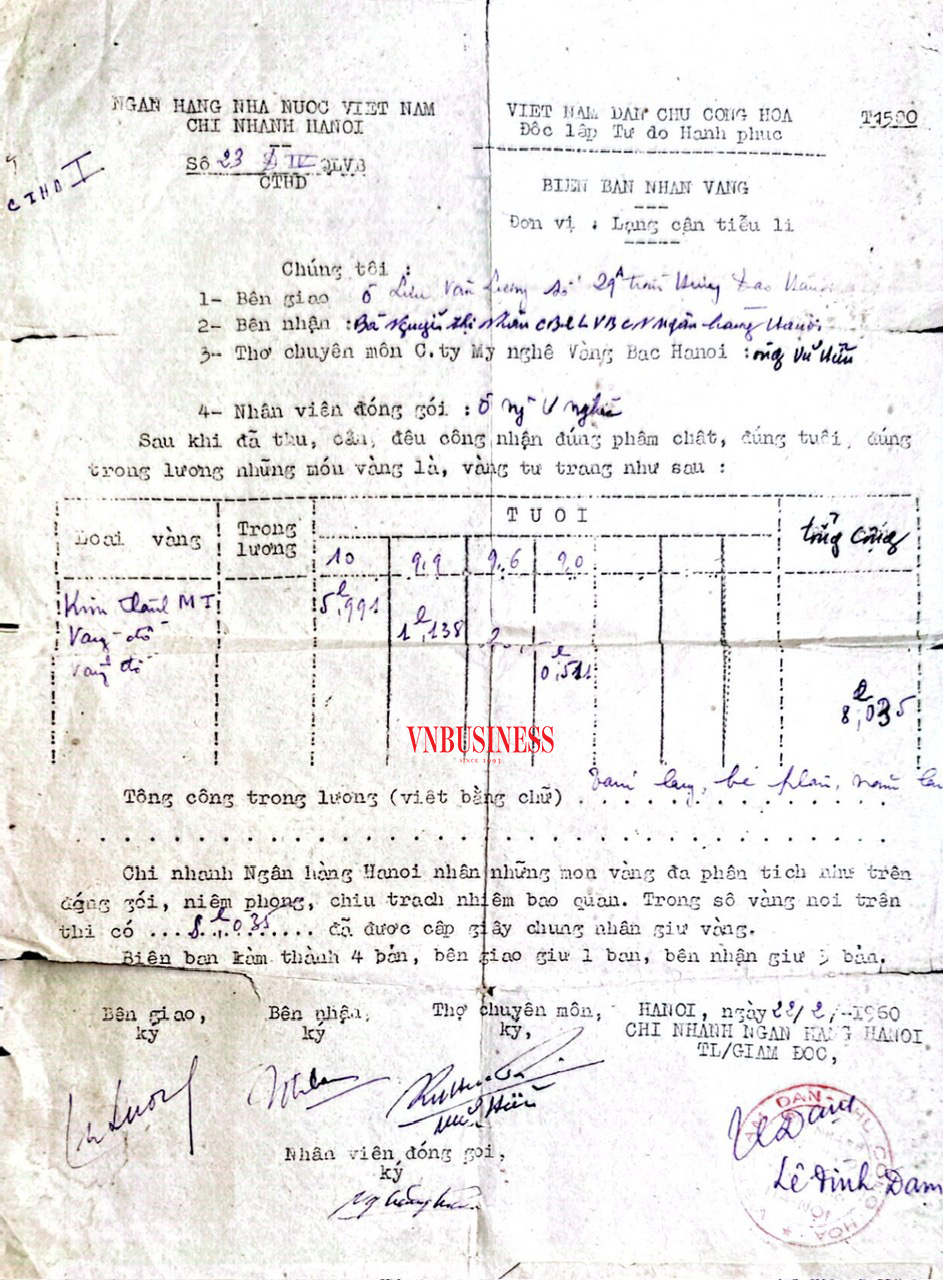 NGAN HANG NHA NUOC VIET NAM
CHI NHANH HANOI
Sô 23 QLVB
CTHD
CTHD I
VIET NAM DAN CHU CONG HOA
Đôc lâp Tư do Hanh phuc
T1500
BIEN BAN NHAN VANG
Đơn vị : Lạng cận tiểu li
Chúng tôi :
1- Bên giao ô Lưu Văn Lương số 29A Trần Hưng Đạo Hanoi
2- Bên nhận : Bà Nguyễn thị Nhàn CBQLVB CN Ngân hàng Hanoi
3- Thơ chuyên môn C.ty My nghê Vàng Bac Hanoi : ông Vũ Hữu
4- Nhân viên đóng gói : Ô Ng V
Sau khi đã thu, cân, đêu công nhận đúng phâm chât, đúng tuôi, đúng
trong lương những móu vàng là, vàng tư trang như sau :
Loai vàng
Trong lương
TUOI
tổng cộng
10 9,9 9,6 9,0
Kim thành MT 5l,991
Vang đỏ 1l,138
vang đỏ 0l,511
8l,035
VNBUSINESS
SINCE 1993
Tông công trong lương (viêt bằng chữ) Tám lạng, bé phân, năm
Chi nhanh Ngân hàng Hanoi nhân những mon vàng đa phân tich như trên
đóng gói, niêm phong, chiu trach nhiêm bao quan. Trong sô vàng noi trên
thi có ...8l,035... đã được câp giây chung nhân giư vàng.
Biên ban làm thành 4 bản, bên giao giư 1 ban, bên nhận giư 3 bản.
Bên giao,
ký
Bên nhận,
ký
Thợ chuyên môn,
ký,
HANOI, ngày 22/2/-1960
CHI NHANH NGAN HANG HANOI
TL/GIAM ĐOC,
Vũ Hữu
Nhân viên đóng goi,
ký
Lê Đình Đam